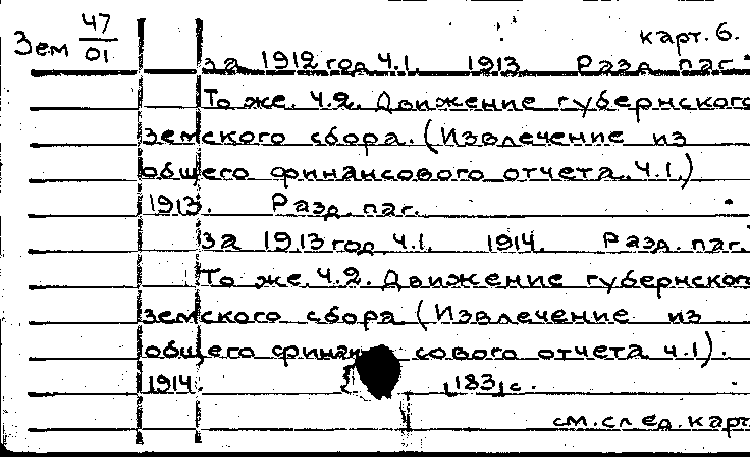 Зем 47/01
карт. 6.
за 1912 год Ч.1. 1913. Разд. паг.
То же. Ч.2. Движение губернского
земского сбора. (Извлечение из
общего финансового отчета. Ч.1.)
1913. Разд. паг.
за 1913 год Ч.1. 1914. Разд. паг.
То же. Ч.2. Движение губернског
земского сбора (Извлечение из
общего финансового отчета Ч.1).
1914. [183] с.
см. след. карт